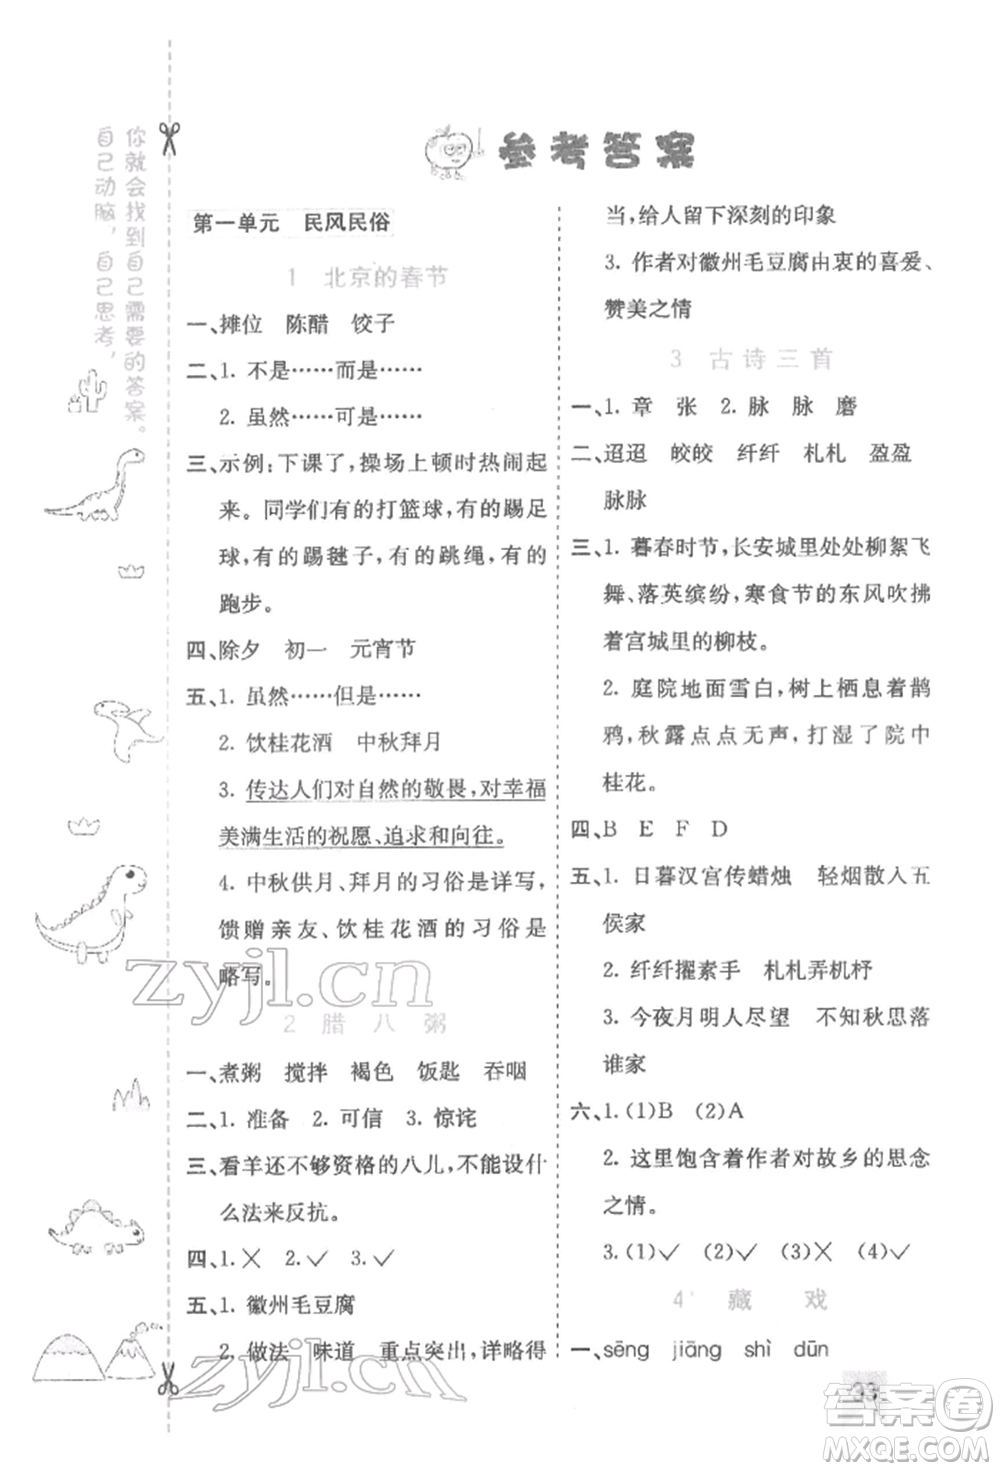 你就会找到自己需要的答案。
自己动脑，自己思考，
参考答案
第一单元 民风民俗
1 北京的春节
一、摊位 陈醋 饺子
二、1. 不是……而是……
2. 虽然……可是……
三、示例：下课了，操场上顿时热闹起
来。同学们有的打篮球，有的踢足
球，有的踢毽子，有的跳绳，有的
跑步。
四、除夕 初一 元宵节
五、1. 虽然……但是……
2. 饮桂花酒 中秋拜月
3. 传达人们对自然的敬畏，对幸福
美满生活的祝愿、追求和向往。
4. 中秋供月、拜月的习俗是详写，
馈赠亲友、饮桂花酒的习俗是
略写。
2 腊八粥
一、煮粥 搅拌 褐色 饭匙 吞咽
二、1. 准备 2. 可信 3. 惊诧
三、看羊还不够资格的八儿，不能设什
么法来反抗。
四、1.✗ 2.✓ 3.✓
五、1. 徽州毛豆腐
2. 做法 味道 重点突出，详略得
当，给人留下深刻的印象
3. 作者对徽州毛豆腐由衷的喜爱、
赞美之情
3 古诗三首
一、1. 章 张 2. 脉 脉 磨
二、迢迢 皎皎 纤纤 札札 盈盈
脉脉
三、1. 暮春时节，长安城里处处柳絮飞
舞、落英缤纷，寒食节的东风吹拂
着宫城里的柳枝。
2. 庭院地面雪白，树上栖息着鹊
鸦，秋露点点无声，打湿了院中
桂花。
四、B E F D
五、1. 日暮汉宫传蜡烛 轻烟散入五
侯家
2. 纤纤擢素手 札札弄机杼
3. 今夜月明人尽望 不知秋思落
谁家
六、1.(1)B (2)A
2. 这里饱含着作者对故乡的思念
之情。
3.(1)✓ (2)✓ (3)✗ (4)✓
4* 藏戏
一、sēng jiāng shì dūn
zyjl.cn
zyjl.cn
答案圈
MXQE.COM